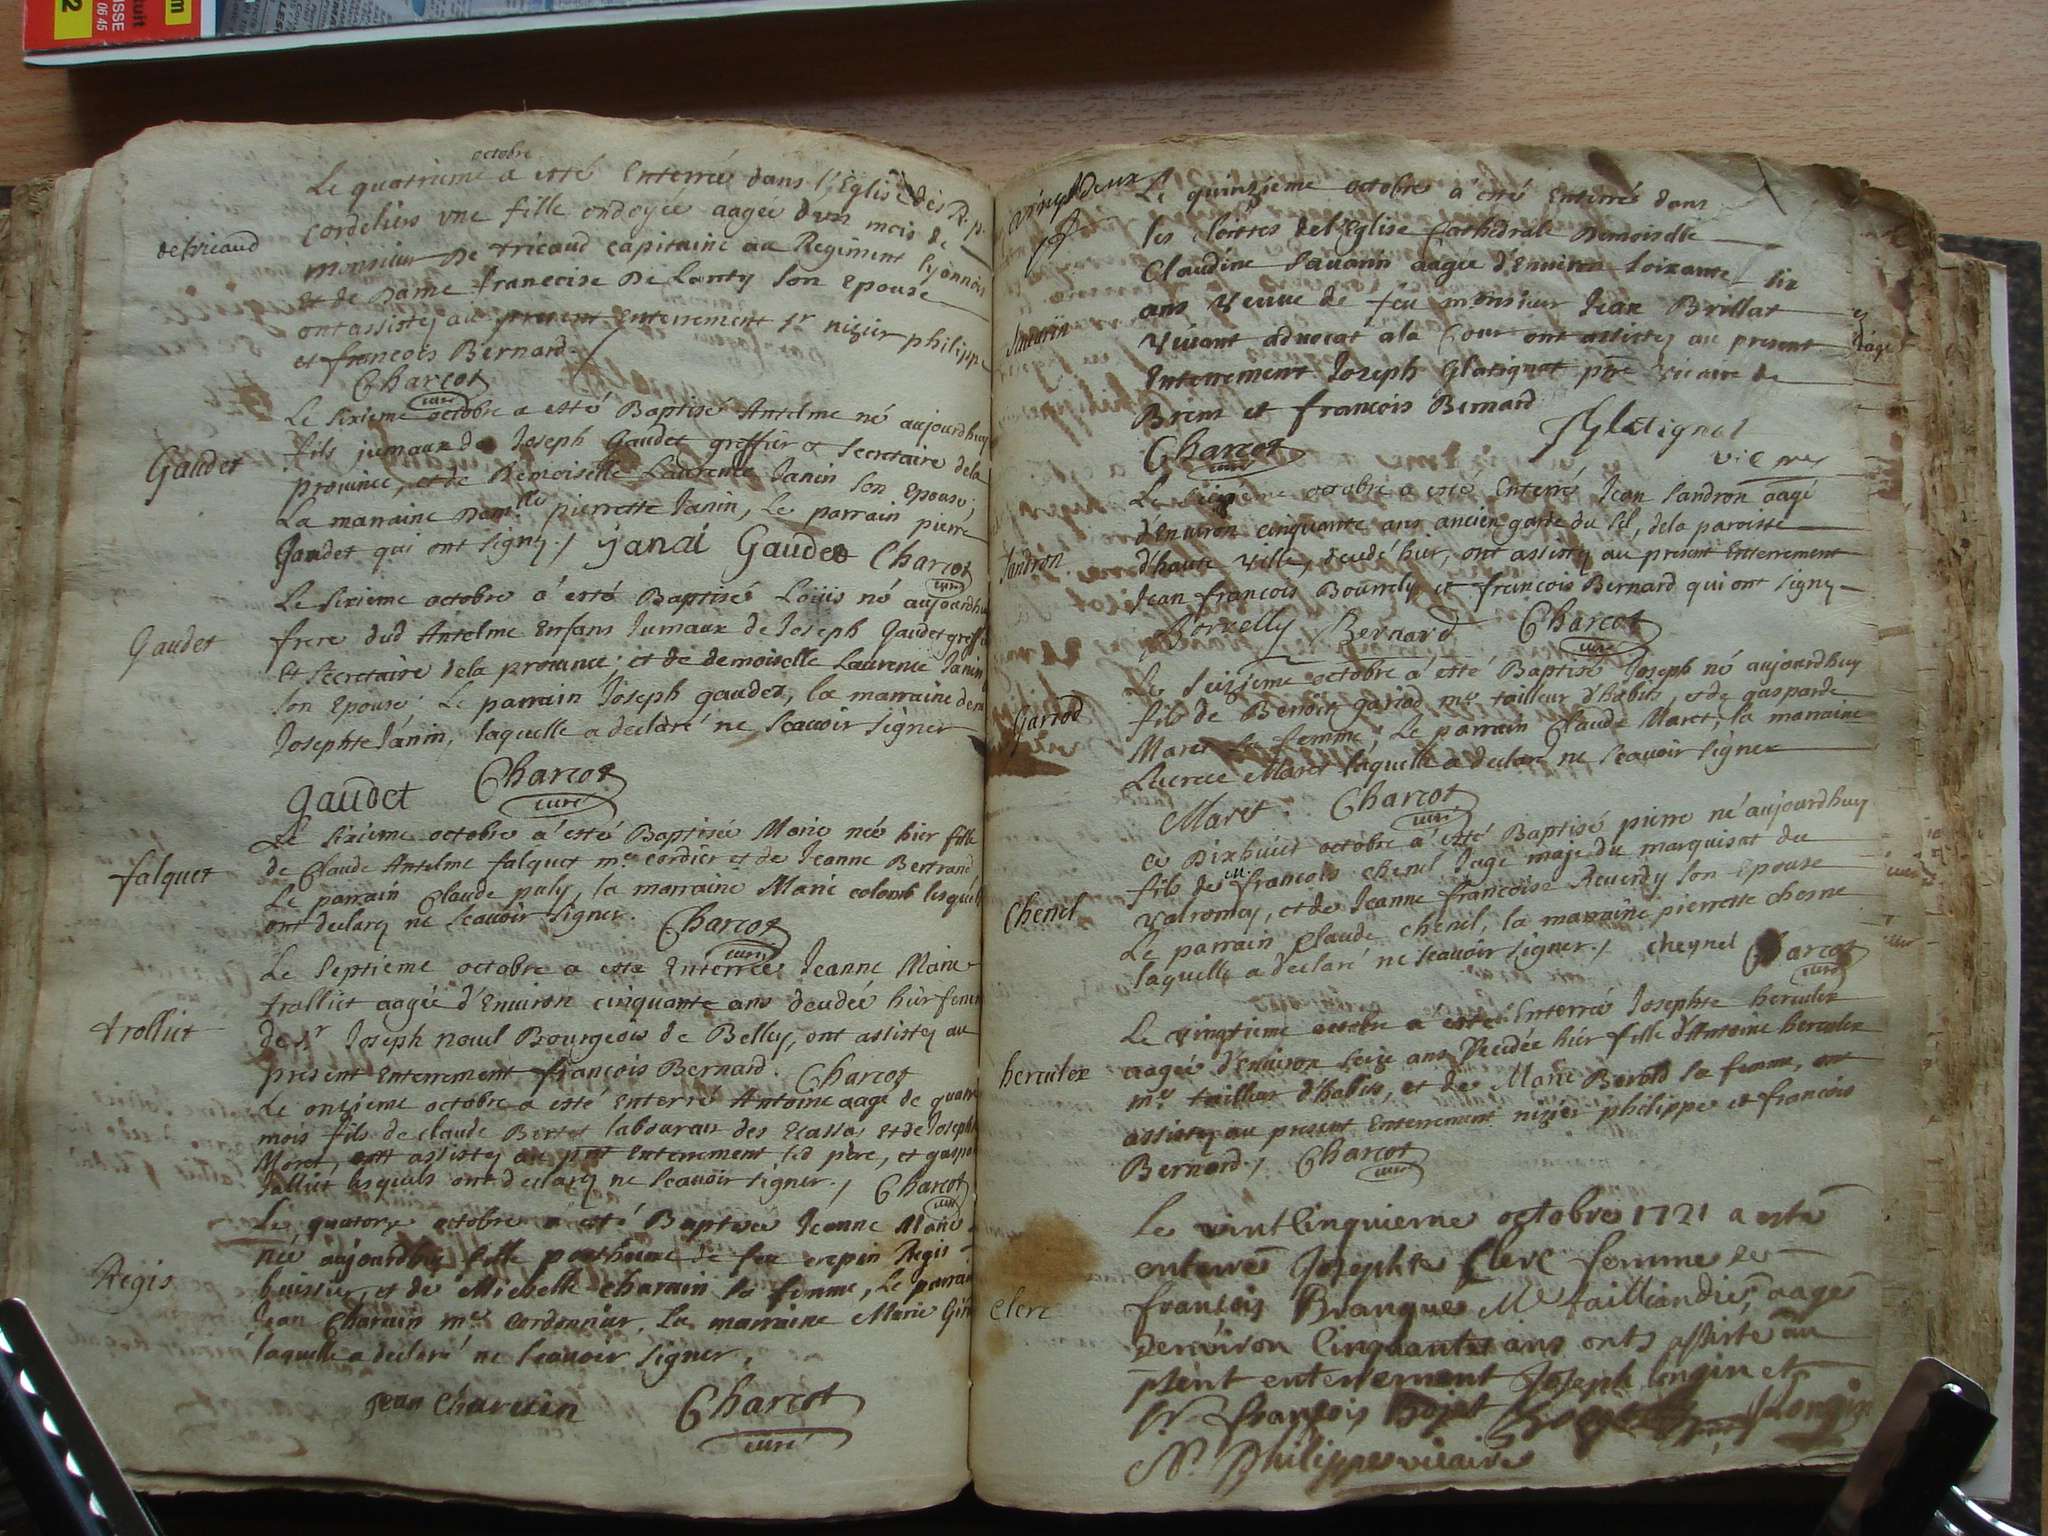 octobre
Le quatrieme a esté Enterrée dans l'Eglise des R. p.
Cordeliers une fille ondoyée aagée d'un mois de
de tricaud
monsieur De tricaud capitaine au Regiment lyonnois
et de Dame francoise De Lanty son Epouse
ont assistez au present Enterrement sr nizier philippe
et francois Bernard /
Charcot
curé
Le sixieme octobre a esté Baptisé Antelme né aujourdhuy
Gaudet
fils jumaux de Joseph Gaudet greffier et secretaire dela
province, et de Demoiselle Laurence Janin son Epouse;
La marraine Demlle pierrette Janin, Le parrain pierre
Gaudet qui ont signez / Gaudet Charcot
curé
Le sixieme octobre a esté Baptisé Loüis né aujourdhuy
Gaudet
frere dud Antelme Enfans Jumaux de Joseph Gaudet greff
et secretaire dela province, et de demoiselle Laurence Janin
son Epouse. Le parrain Joseph gaudet, la marraine dem
Josephte Janin, laquelle a declaré ne scauoir signer
gaudet Charcot
curé
Le sixieme octobre a esté Baptisée Marie née hier fille
falquet
de Claude Antelme falquet me cordier et de Jeanne Bertrand
Le parrain Claude puly, la marraine Marie colomb lesquels
ont declarez ne scauoir signer. Charcot
curé
Le septieme octobre a esté Enterrée Jeanne Marie
trolliet
trolliet aagée d'Enuiron cinquante ans decedée hier femme
de sr Joseph nouel Bourgeois de Belley, ont assistez au
present Enterrement francois Bernard. Charcot
Le onzieme octobre a esté Enterré Antoine aagé de quatre
mois fils de claude laboureur des Ecassas et de Josephte
Moret, assistez au pnt Enterrement led père, et
lesquels ont declarez ne scauoir signer. / Charcot
curé
Le quatorze octobre a esté Baptisée Jeanne Marie
Regis
née aujourdhuy fille posthume de feu crepin Regis
huissier, et de Michelle charuin sa femme, Le parrain
Jean Charuin me Cordonnier, La marraine Marie
laquelle a declaré ne scauoir signer,
Jean Charuin Charcot
curé
vingt deux
Le quinzieme octobre a esté Enterrée dans
les cloitres de l'Eglise Cathedrale Demoiselle
Claudine Sauarin aagée d'Enuiron soixante six
ans veuue de feu monsieur Jean Brillat
Sauarin
viuant aduocat a la Cour ont assistez au present
Enterrement Joseph Glatignat ptre vicaire de
Brens et francois Bernard
Charcot
curé
Le octobre a esté Enterré Jean Jandron aagé
d'Enuiron cinquante ans ancien garde du sel, dela paroisse
Jandron
d'haute ville, decedé hier, ont assistez au present Enterrement
Jean francois Bourrely et francois Bernard qui ont signez
Borrelly Bernard Charcot
curé
Le seizieme octobre a esté Baptisé Joseph né aujourdhuy
Garrod
fils de Benoit gariod me tailleur d'habits, et de gasparde
Maret sa femme, Le parrain Claude Maret, la marraine
Lucrece Maret laquelle a declaré ne scauoir signer
Maret. Charcot
curé
Ce Dixhuict octobre a esté Baptisé pierre né aujourdhuy
fils de Mr francois chenel Juge maje du marquisat du
Chenel
Valromey, et de Jeanne francoise Reuerdy son Epouse
Le parrain Claude chenel, la marraine pierrette chesne
laquelle a declaré ne scauoir signer. / cheynel Charcot
curé
Le vingtieme octobre a esté Enterrée Josephte herculex
herculex
aagée d'Enuiron seize ans Decedée hier fille d'Antoine herculex
me tailleur d'habits, et de Marie Berod sa femme, ont
assistez au present Enterrement nizier philippe et francois
Bernard. / Charcot
curé
Le vint Cinquieme octobre 1721 a esté
enterrée Josephte Clerc femme de
Clerc
françois Branque Me tailliandier, aagée
denviron Cinquante ans onts assisté au
psent enterrement Joseph longin et
Sr françois Bojet Longin
N. Philippes vicaire